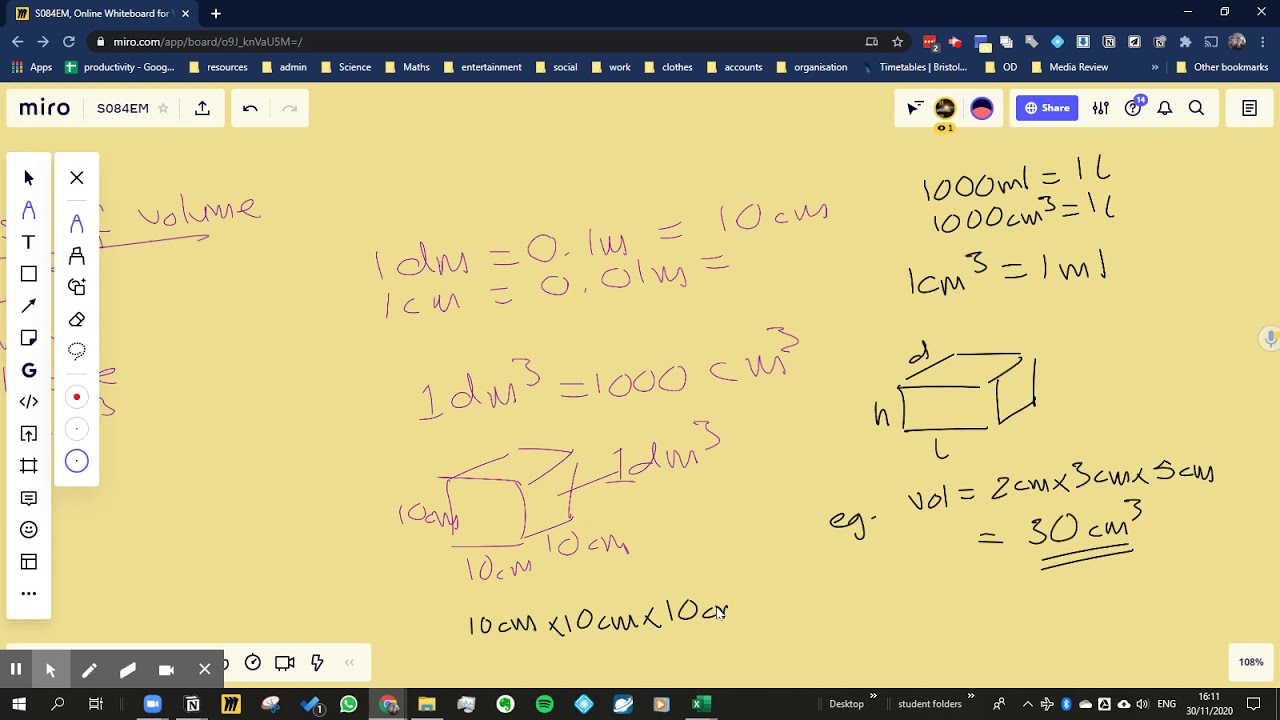 S084EM, Online Whiteboard for
miro.com/app/board/o9J_knVaU5M=/
2
Apps productivity - Goog... resources admin Science Maths entertainment social work clothes accounts organisation Timetables | Bristol... OD Media Review » Other bookmarks
miro S084EM Share 14
1
volume
1dm = 0.1m = 10cm
1cm = 0.01m =
1dm³ = 1000 cm³
1dm³
10cm
10cm
10cm
10cm x 10cm x 10cm
1000ml = 1l
1000cm³ = 1l
1cm³ = 1ml
d
h
l
eg. vol = 2cm x 3cm x 5cm
= 30cm³
T
G
</>
108%
Desktop » student folders » ENG 16:11
30/11/2020